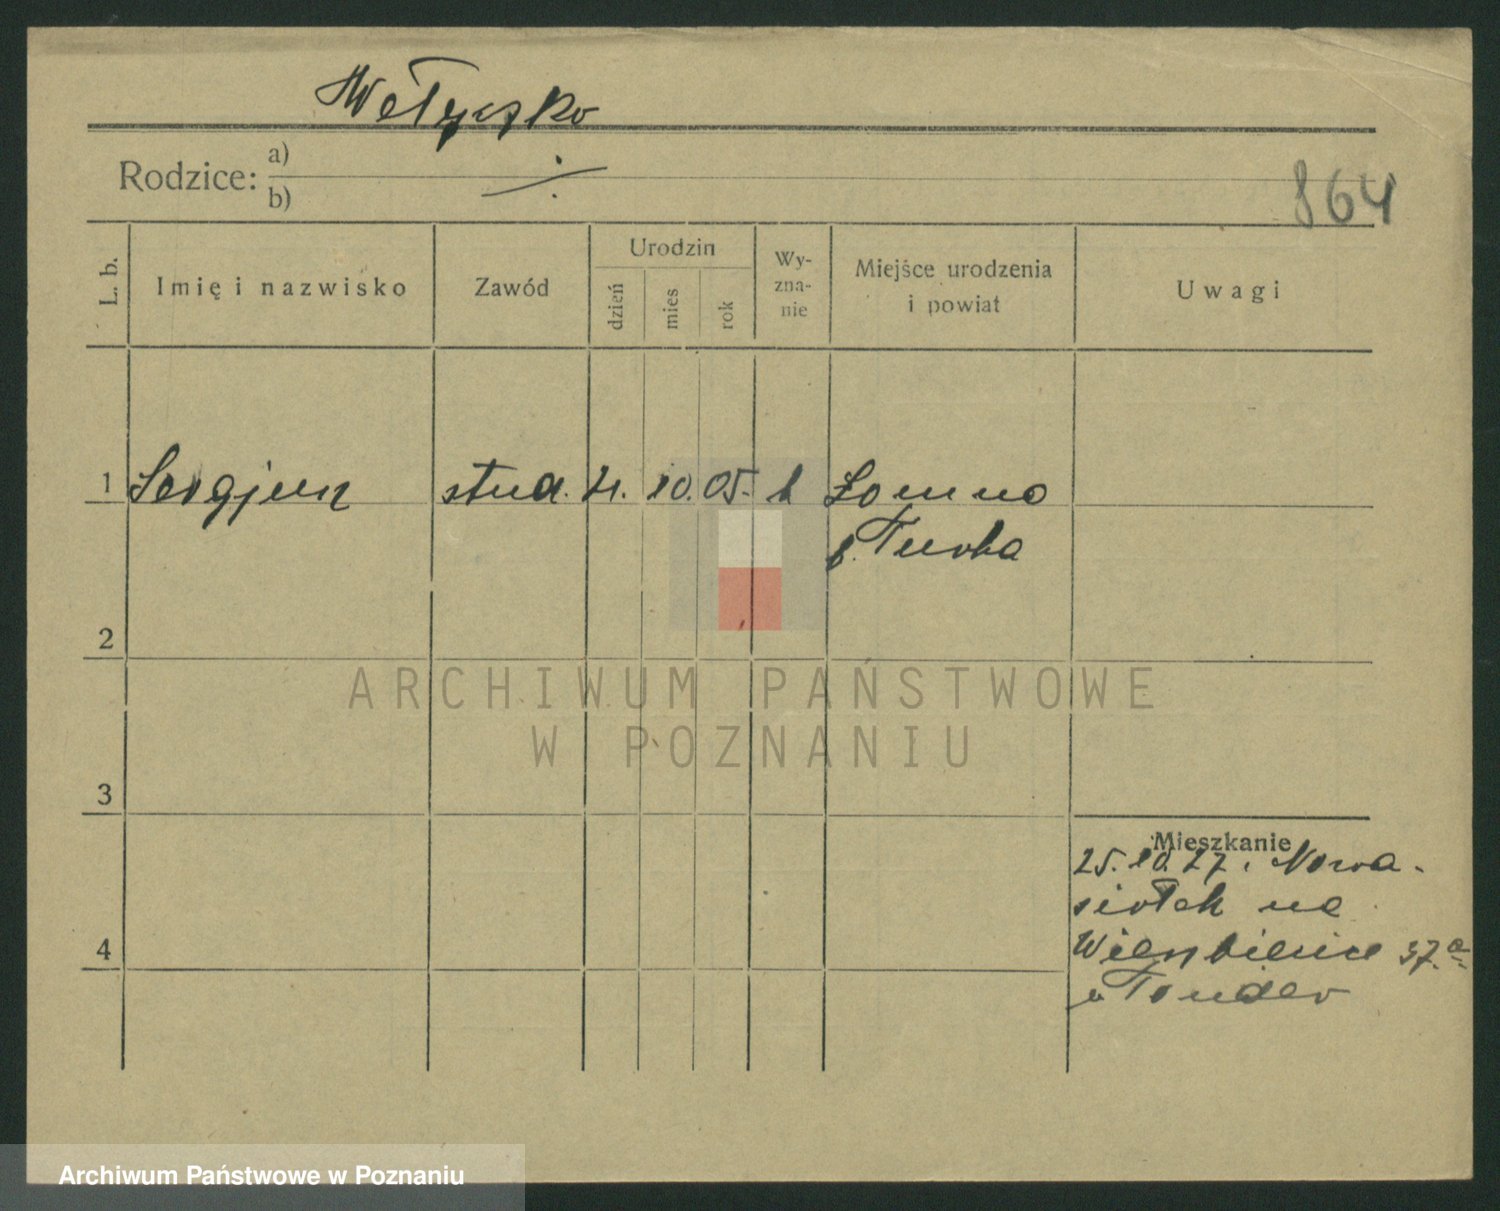 Wełyczko
Rodzice: a)
b)
864
L. b.
Imię i nazwisko
Zawód
Urodzin
dzień
mies
rok
Wy-
zna-
nie
Miejsce urodzenia
i powiat
Uwagi
1 Sergjusz stud. 21. 10. 05. Łomno
p. Turka
2
ARCHIWUM PAŃSTWOWE
W POZNANIU
3
Mieszkanie
25.10.27. Nowa-
siołek na
37a
4
u Tonder
Archiwum Państwowe w Poznaniu